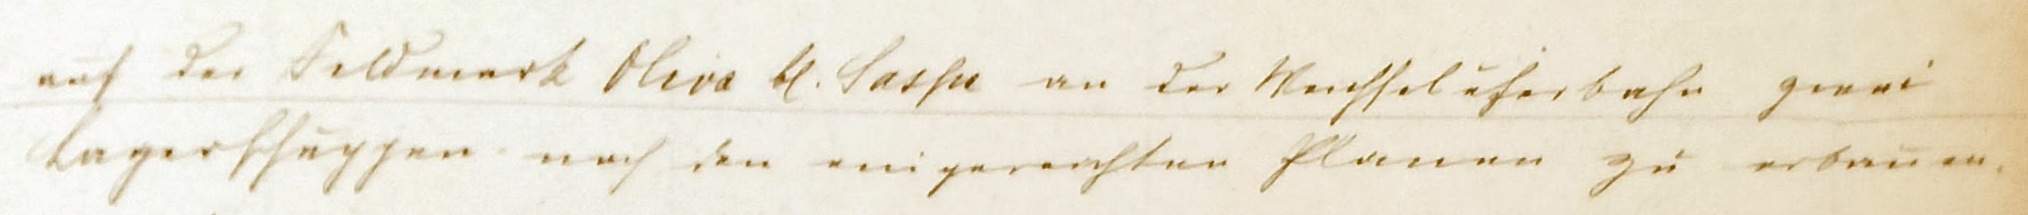 auf der Feldmark Oliva Bl. Saspe an der Weichseluferbahn zwei
Lagerschuppen nach den eingereichten Plänen zu erbauen.